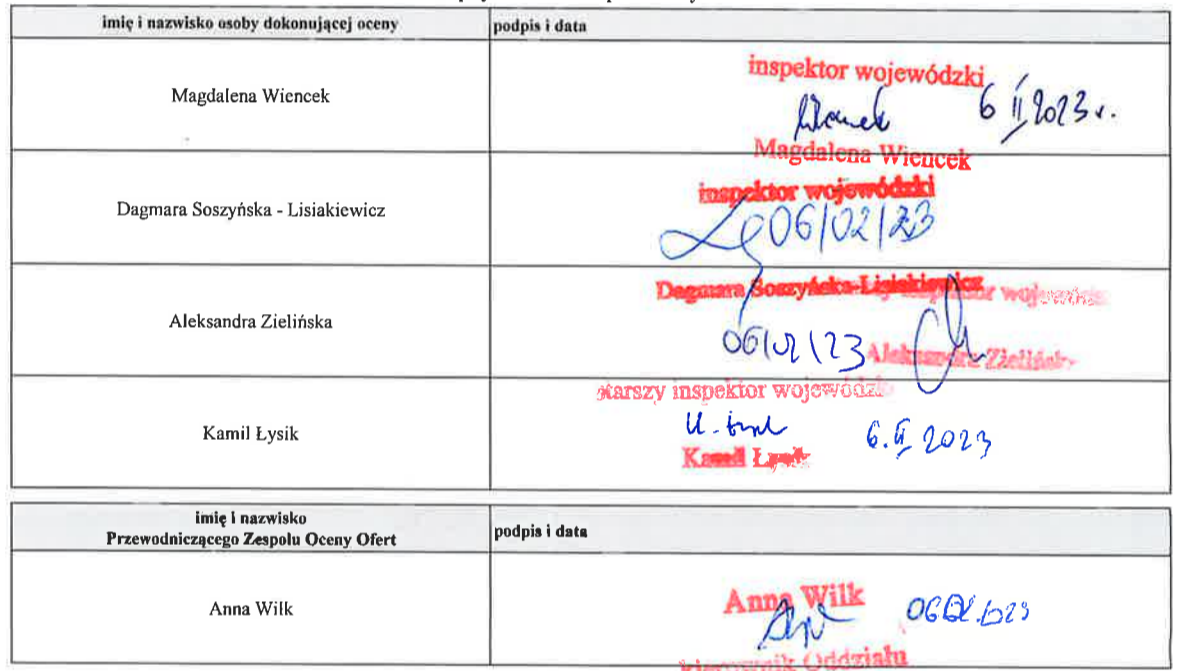 imię i nazwisko osoby dokonującej oceny
podpis i data
Magdalena Wiencek
inspektor wojewódzki
6 II 2023 r.
Magdalena Wiencek
Dagmara Soszyńska - Lisiakiewicz
inspektor wojewódzki
06/02/23
Dagmara Soszyńska-Lisiakiewicz
inspektor wojewódzki
Aleksandra Zielińska
06/02/23
Aleksandra Zielińska
Kamil Łysik
starszy inspektor wojewódzki
6. II 2023
Kamil Łysik
imię i nazwisko
Przewodniczącego Zespołu Oceny Ofert
podpis i data
Anna Wilk
Anna Wilk
06.02.2023
kierownik Oddziału